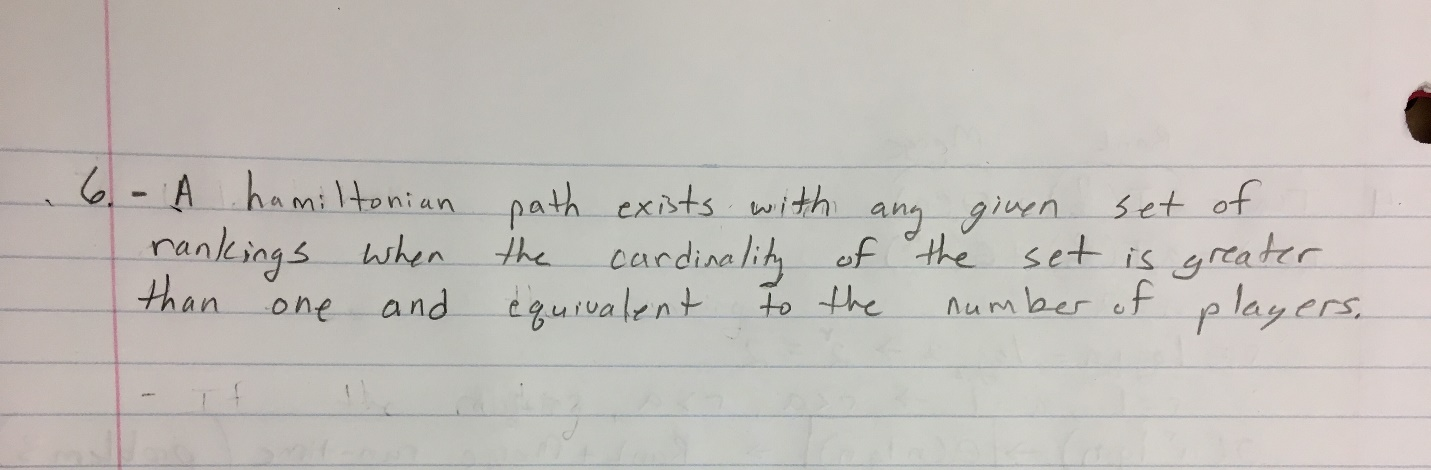 6. - A hamiltonian path exists with any given set of
rankings when the cardinality of the set is greater
than one and equivalent to the number of players.
- If